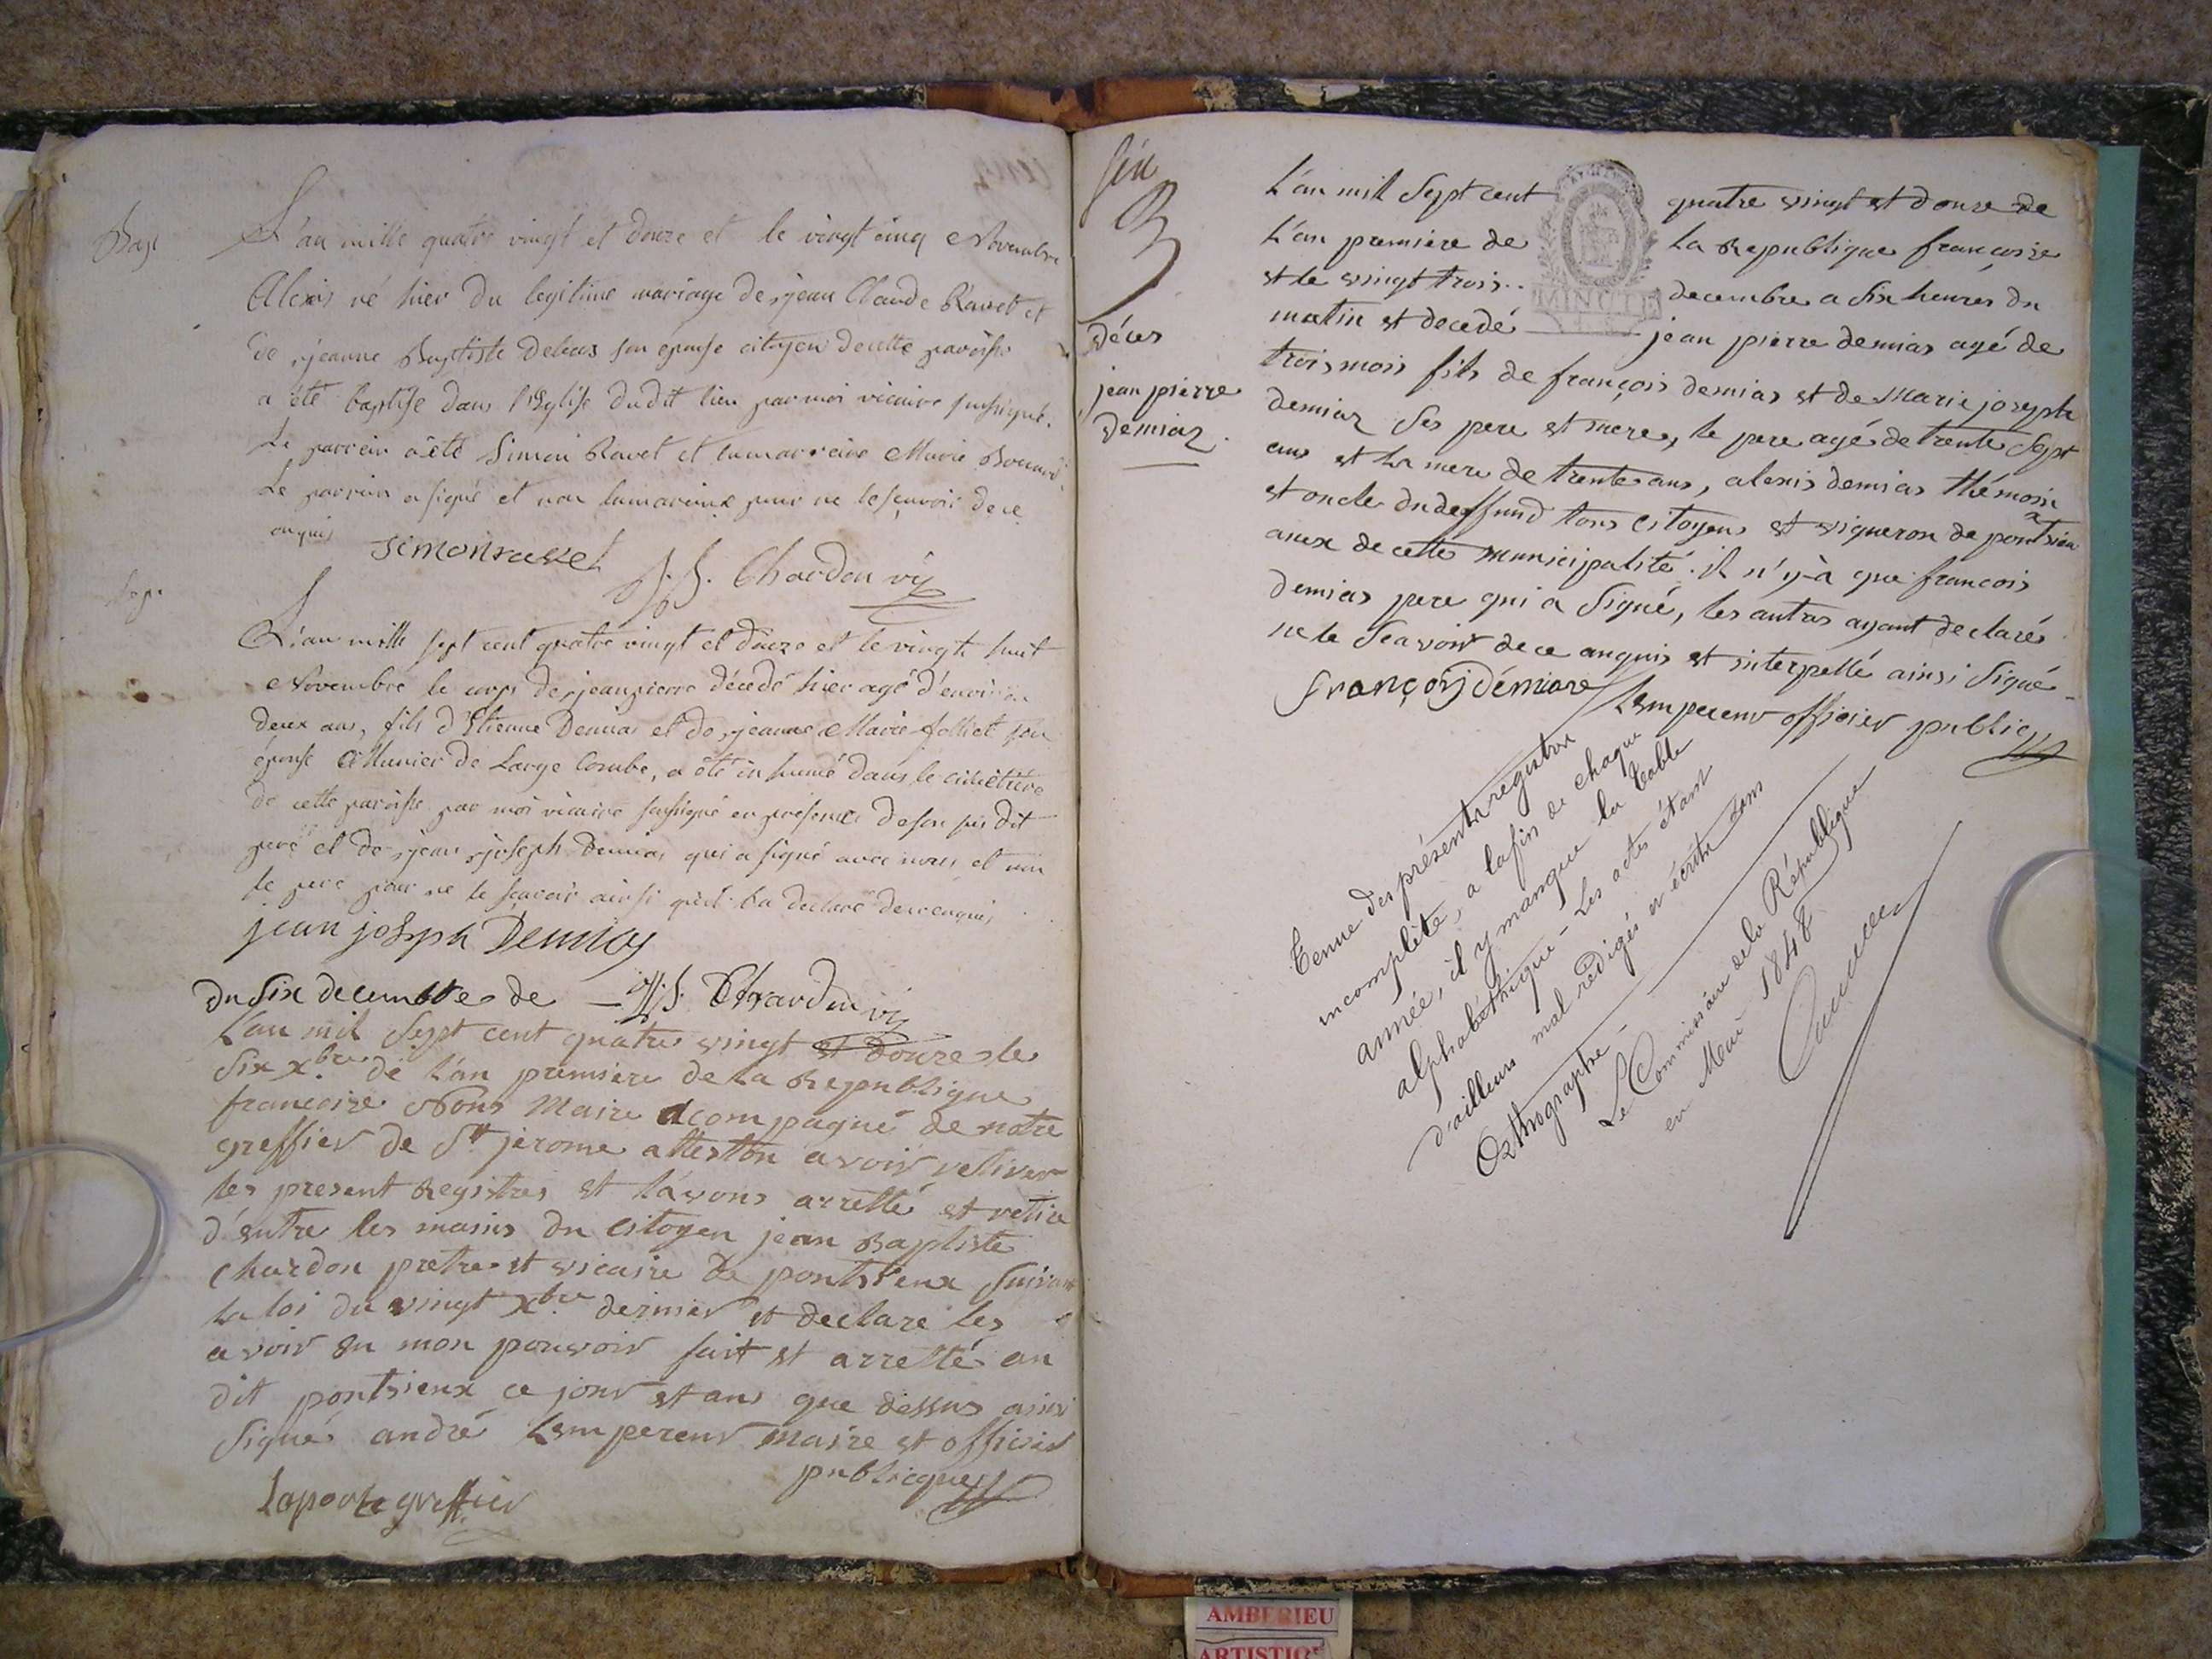 Bap.
L'an mille quatre vingt et douze et le vingt cinq Novembre
Alexis né hier du legitime mariage de jean Claude Ravet et
de jeanne Baptiste Debeas son epouse citoyen de cette paroisse
a été baptisé dans l'Eglise dudit lieu par moi vicaire soussigné.
Le parrein a été Simon Ravet et la marreine Marie
Le parrein a signé et non la mareine pour ne le sçavoir de ce
enquis
simon ravet
J. B. Chardon vic
L'an mille sept cent quatre vingt et douze et le vingt huit
Novembre le corps de jean pierre décédé hier agé d'environ
deux ans, fils d'Etienne Demias et de jeanne Marie folliet son
épouse Munier de Large Combe, a été inhumé dans le cimetiere
de cette paroisse par moi vicaire soussigné en présence de son susdit
pere et de jean joseph Demias qui a signé avec nous et non
le pere pour ne le sçavoir ainsi qu'il l'a declaré de ce enquis
jean joseph Demias
J. B. Chardon vic
du six decembre de
L'an mil sept cent quatre vingt et douze le
six xbre de l'an premiere de la Republique
francoise Nous Maire acompagné de notre
greffier de St jerome atteston avoir retiver
les present Registres et l'avons arretté et retire
d'entre les mains du citoyen jean Baptiste
chardon pretre et vicaire de pontsieux suivant
la loi du vingt xbre dernier et declare les
avoir en mon pouvoir fait et arretté au
dit pontsieux ce jour et ans que dessus ainsi
signé andré Lempereur maire et officier
publicque
Laporte greffier
six
décès
jean pierre
demiaz
L'an mil sept cent quatre vingt et douze de
L'an premiere de la Republique francoise
et le vingt trois decembre a six heures du
MINUTE
matin et decedé jean pierre demias agé de
trois mois fils de françois demias et de Marie joseph
demiaz ses pere et mere, le pere agé de trente sept
ans et la mere de trente ans, alexis demias thémoin
et oncle du deffund tous citoyens et vigneron de pontsieu
anex de cette municipalité. il n'y à que francois
demias pere qui a signé, les autres ayant declarés
ne le Scavoir de ce anquis et interpellé ainsi signé
françois démiare
Lempereur officier public
Tenue des présents registres
incomplète, a la fin de chaque
année, il y manque la table
alphabéthique - Les actes étant
d'ailleurs mal rédigés et écrits sans
Orthographe
Le Commissaire de la République
en Mai 1848
AMBERIEU
ARTISTIQ